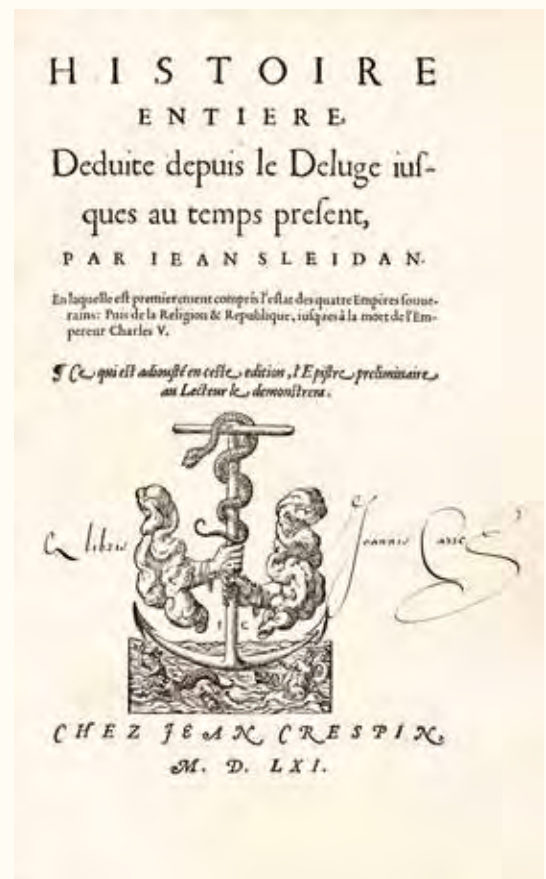 HISTOIRE
ENTIERE,
Deduite depuis le Deluge iuſ-
ques au temps preſent,
PAR IEAN SLEIDAN.
En laquelle eſt premierement compris l'eſtat des quatre Empires ſouue-
rains: Puis de la Religion & Republique, iuſques à la mort de l'Em-
pereur Charles V.
¶ Ce qui eſt adiouſté en ceſte edition, l'Epiſtre preliminaire
au Lecteur le demonſtrera.
Ex libris Joannis
I C
CHEZ JEAN CRESPIN,
M. D. LXI.